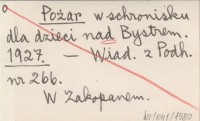 Pożar w schronisku
dla dzieci nad Bystrem.
1927. — Wiad. z Podh.
nr 266.
W Zakopanem.